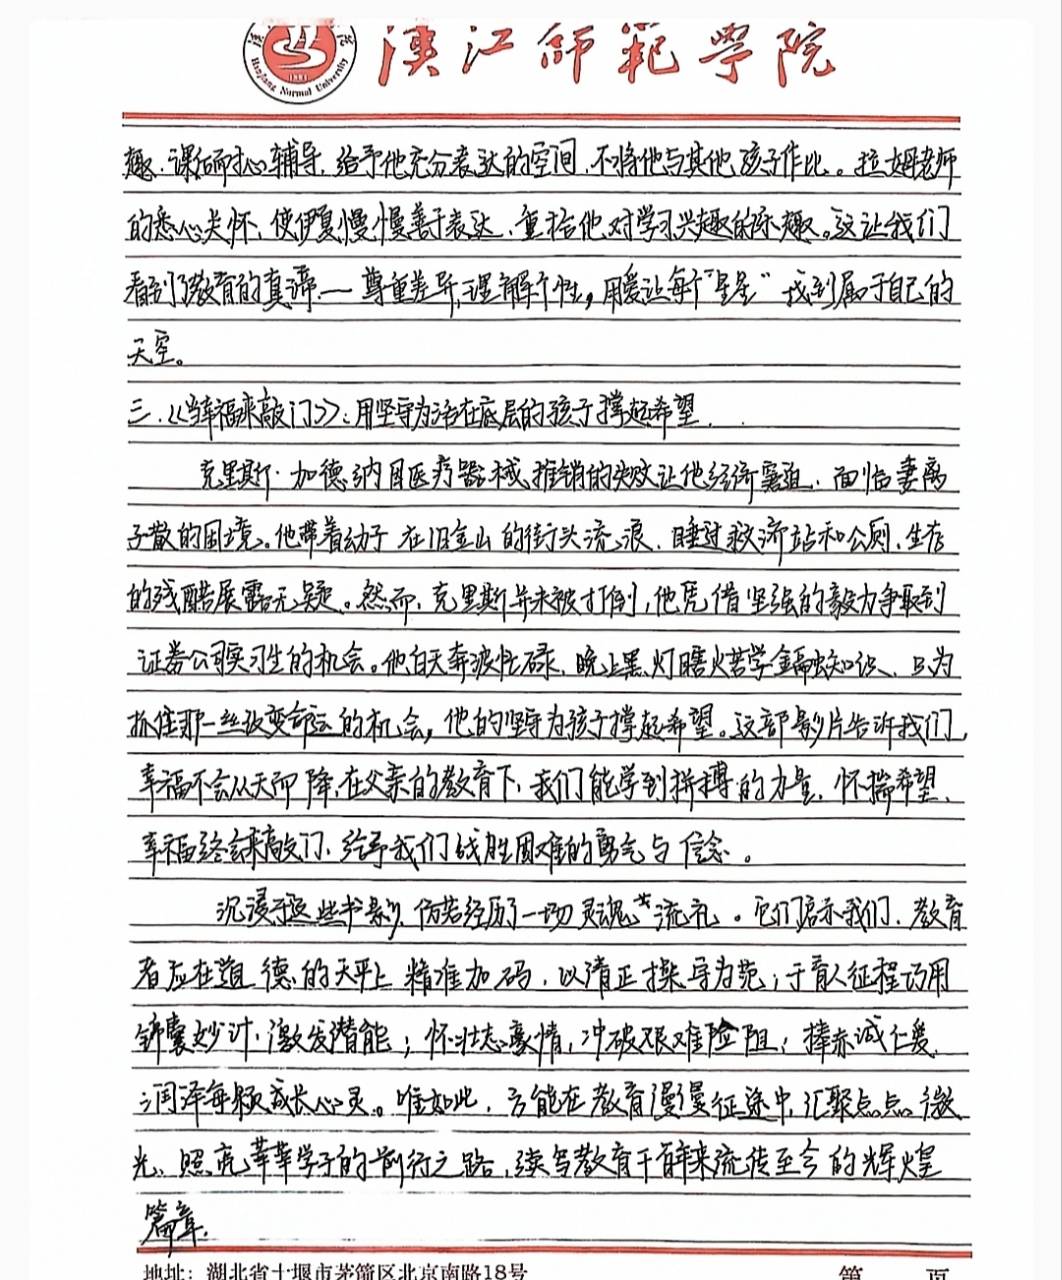 汉江师范学院
Hanjiang Normal University
趣.课后耐心辅导.给予他充分表达的空间.不将他与其他孩子作比。拉姆老师
的悉心关怀,使伊夏慢慢善于表达.重拾他对学习兴趣的乐趣。这让我们
看到了教育的真谛—尊重差异,理解个性,用爱让每个“星星”找到属于自己的
天空。
三.《当幸福来敲门》:用坚守为活在底层的孩子撑起希望.
克里斯·加德纳因医疗器械推销的失败让他经济窘迫.面临妻离
子散的困境。他带着幼子在旧金山的街头流浪.睡过救济站和公厕.生存
的残酷展露无疑。然而,克里斯并未被打倒,他凭借坚强的毅力争取到
证券公司实习生的机会。他白天奔波忙碌、晚上黑灯瞎火苦学金融知识、只为
抓住那一丝改变命运的机会,他的坚守为孩子撑起希望。这部影片告诉我们,
幸福不会从天而降.在父亲的教育下,我们能学到拼搏的力量.怀揣希望,
幸福终会来敲门.给予我们战胜困难的勇气与信念。
沉浸于这些书影,仿若经历了一场灵魂洗礼。它们启示我们.教育
者应在道德的天平上精准加码,以清正操守为范;于育人征程巧用
锦囊妙计.激发潜能;怀壮志豪情,冲破艰难险阻;捧赤诚仁爱,
润泽每颗成长心灵。唯如此,方能在教育漫漫征途中,汇聚点点微
光、照亮莘莘学子的前行之路,续写教育千百年来流传至今的辉煌
篇章.
地址:湖北省十堰市茅箭区北京南路18号 第 页